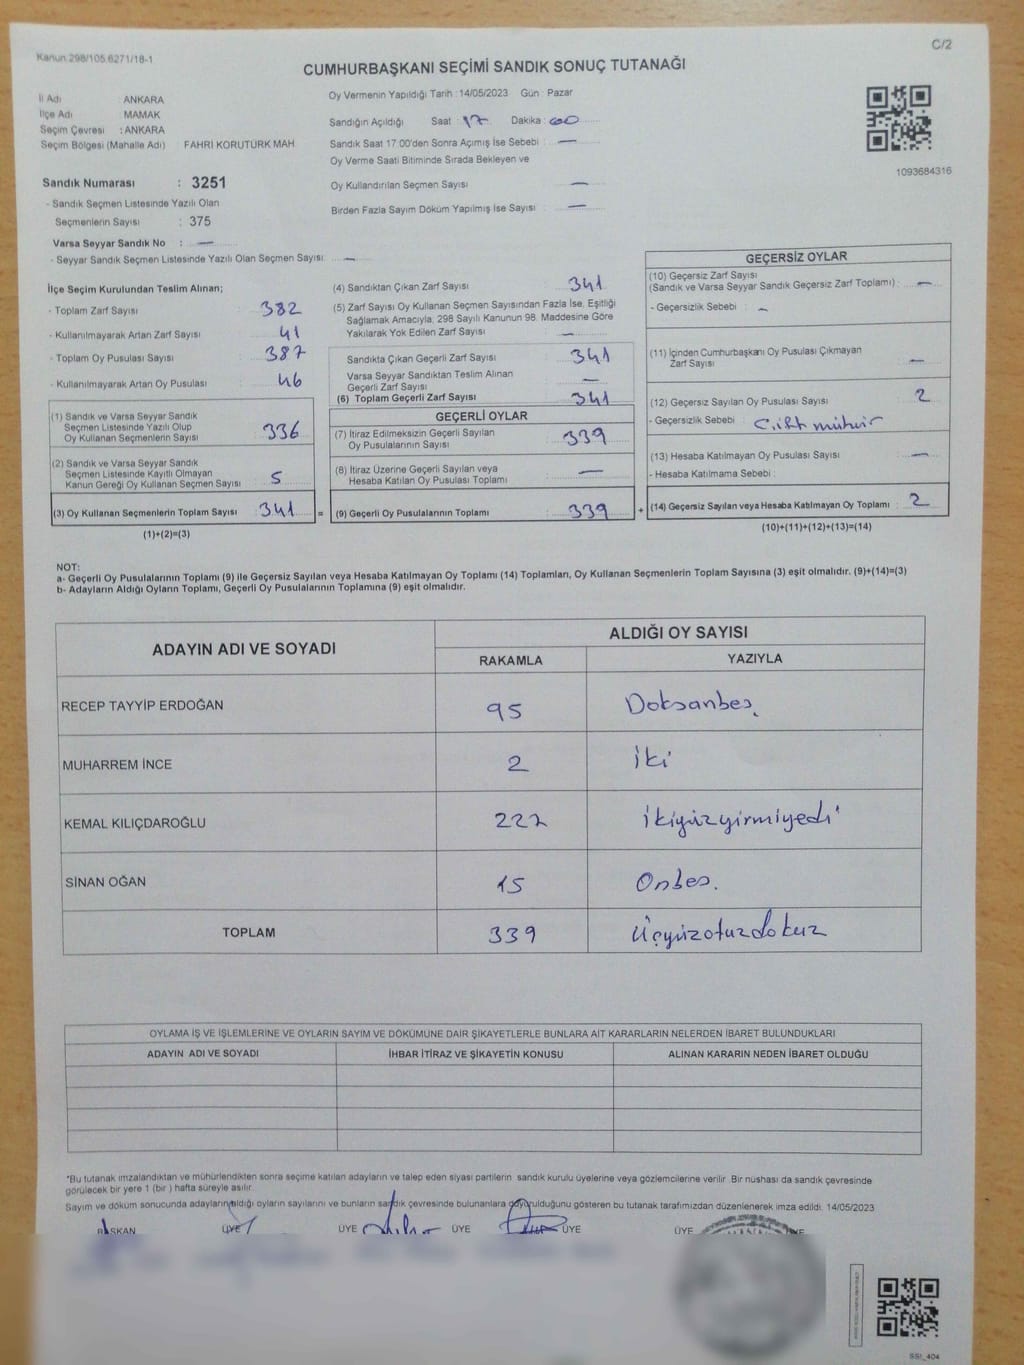 Kanun 298/105 6271/18-1
C/2
CUMHURBAŞKANI SEÇİMİ SANDIK SONUÇ TUTANAĞI
İl Adı ANKARA
İlçe Adı MAMAK
Seçim Çevresi : ANKARA
Seçim Bölgesi (Mahalle Adı) FAHRİ KORUTÜRK MAH
Oy Vermenin Yapıldığı Tarih : 14/05/2023 Gün : Pazar
Sandığın Açıldığı Saat : 17 Dakika : 00
Sandık Saat 17:00'den Sonra Açımış İse Sebebi : —
Oy Verme Saati Bitiminde Sırada Bekleyen ve
Oy Kullandırılan Seçmen Sayısı —
Birden Fazla Sayım Döküm Yapılmış İse Sayısı : —
1093684316
Sandık Numarası : 3251
- Sandık Seçmen Listesinde Yazılı Olan
Seçmenlerin Sayısı : 375
Varsa Seyyar Sandık No : —
- Seyyar Sandık Seçmen Listesinde Yazılı Olan Seçmen Sayısı: —
İlçe Seçim Kurulundan Teslim Alınan;
- Toplam Zarf Sayısı : 382
- Kullanılmayarak Artan Zarf Sayısı : 41
- Toplam Oy Pusulası Sayısı : 387
- Kullanılmayarak Artan Oy Pusulası : 46
(1) Sandık ve Varsa Seyyar Sandık
Seçmen Listesinde Yazılı Olup
Oy Kullanan Seçmenlerin Sayısı : 336
(2) Sandık ve Varsa Seyyar Sandık
Seçmen Listesinde Kayıtlı Olmayan
Kanun Gereği Oy Kullanan Seçmen Sayısı : 5
(3) Oy Kullanan Seçmenlerin Toplam Sayısı : 341 =
(1)+(2)=(3)
(4) Sandıktan Çıkan Zarf Sayısı : 341
(5) Zarf Sayısı Oy Kullanan Seçmen Sayısından Fazla İse, Eşitliği
Sağlamak Amacıyla, 298 Sayılı Kanunun 98. Maddesine Göre
Yakılarak Yok Edilen Zarf Sayısı : —
Sandıkta Çıkan Geçerli Zarf Sayısı : 341
Varsa Seyyar Sandıktan Teslim Alınan
Geçerli Zarf Sayısı : —
(6) Toplam Geçerli Zarf Sayısı : 341
GEÇERLİ OYLAR
(7) İtiraz Edilmeksizin Geçerli Sayılan
Oy Pusulalarının Sayısı : 339
(8) İtiraz Üzerine Geçerli Sayılan veya
Hesaba Katılan Oy Pusulası Toplamı : —
(9) Geçerli Oy Pusulalarının Toplamı : 339 +
GEÇERSİZ OYLAR
(10) Geçersiz Zarf Sayısı
(Sandık ve Varsa Seyyar Sandık Geçersiz Zarf Toplamı) : —
- Geçersizlik Sebebi : —
(11) İçinden Cumhurbaşkanı Oy Pusulası Çıkmayan
Zarf Sayısı : —
(12) Geçersiz Sayılan Oy Pusulası Sayısı : 2
- Geçersizlik Sebebi : Çift mühür
(13) Hesaba Katılmayan Oy Pusulası Sayısı : —
- Hesaba Katılmama Sebebi :
(14) Geçersiz Sayılan veya Hesaba Katılmayan Oy Toplamı : 2
(10)+(11)+(12)+(13)=(14)
NOT:
a- Geçerli Oy Pusulalarının Toplamı (9) ile Geçersiz Sayılan veya Hesaba Katılmayan Oy Toplamı (14) Toplamları, Oy Kullanan Seçmenlerin Toplam Sayısına (3) eşit olmalıdır. (9)+(14)=(3)
b- Adayların Aldığı Oyların Toplamı, Geçerli Oy Pusulalarının Toplamına (9) eşit olmalıdır.
ADAYIN ADI VE SOYADI
ALDIĞI OY SAYISI
RAKAMLA YAZIYLA
RECEP TAYYİP ERDOĞAN 95 Doksanbeş
MUHARREM İNCE 2 İki
KEMAL KILIÇDAROĞLU 227 ikiyüzyirmiyedi
SİNAN OĞAN 15 Onbeş.
TOPLAM 339 Üçyüzotuzdokuz
OYLAMA İŞ VE İŞLEMLERİNE VE OYLARIN SAYIM VE DÖKÜMÜNE DAİR ŞİKAYETLERLE BUNLARA AİT KARARLARIN NELERDEN İBARET BULUNDUKLARI
ADAYIN ADI VE SOYADI İHBAR İTİRAZ VE ŞİKAYETİN KONUSU ALINAN KARARIN NEDEN İBARET OLDUĞU
*Bu tutanak imzalandıktan ve mühürlendikten sonra seçime katılan adayların ve talep eden siyasi partilerin sandık kurulu üyelerine veya gözlemcilerine verilir. Bir nüshası da sandık çevresinde
görülecek bir yere 1 (bir ) hafta süreyle asılır.
Sayım ve döküm sonucunda adayların aldığı oyların sayılarını ve bunların sandık çevresinde bulunanlara duyurulduğunu gösteren bu tutanak tarafımızdan düzenlenerek imza edildi. 14/05/2023
BAŞKAN ÜYE ÜYE ÜYE ÜYE ÜYE
SSI_404